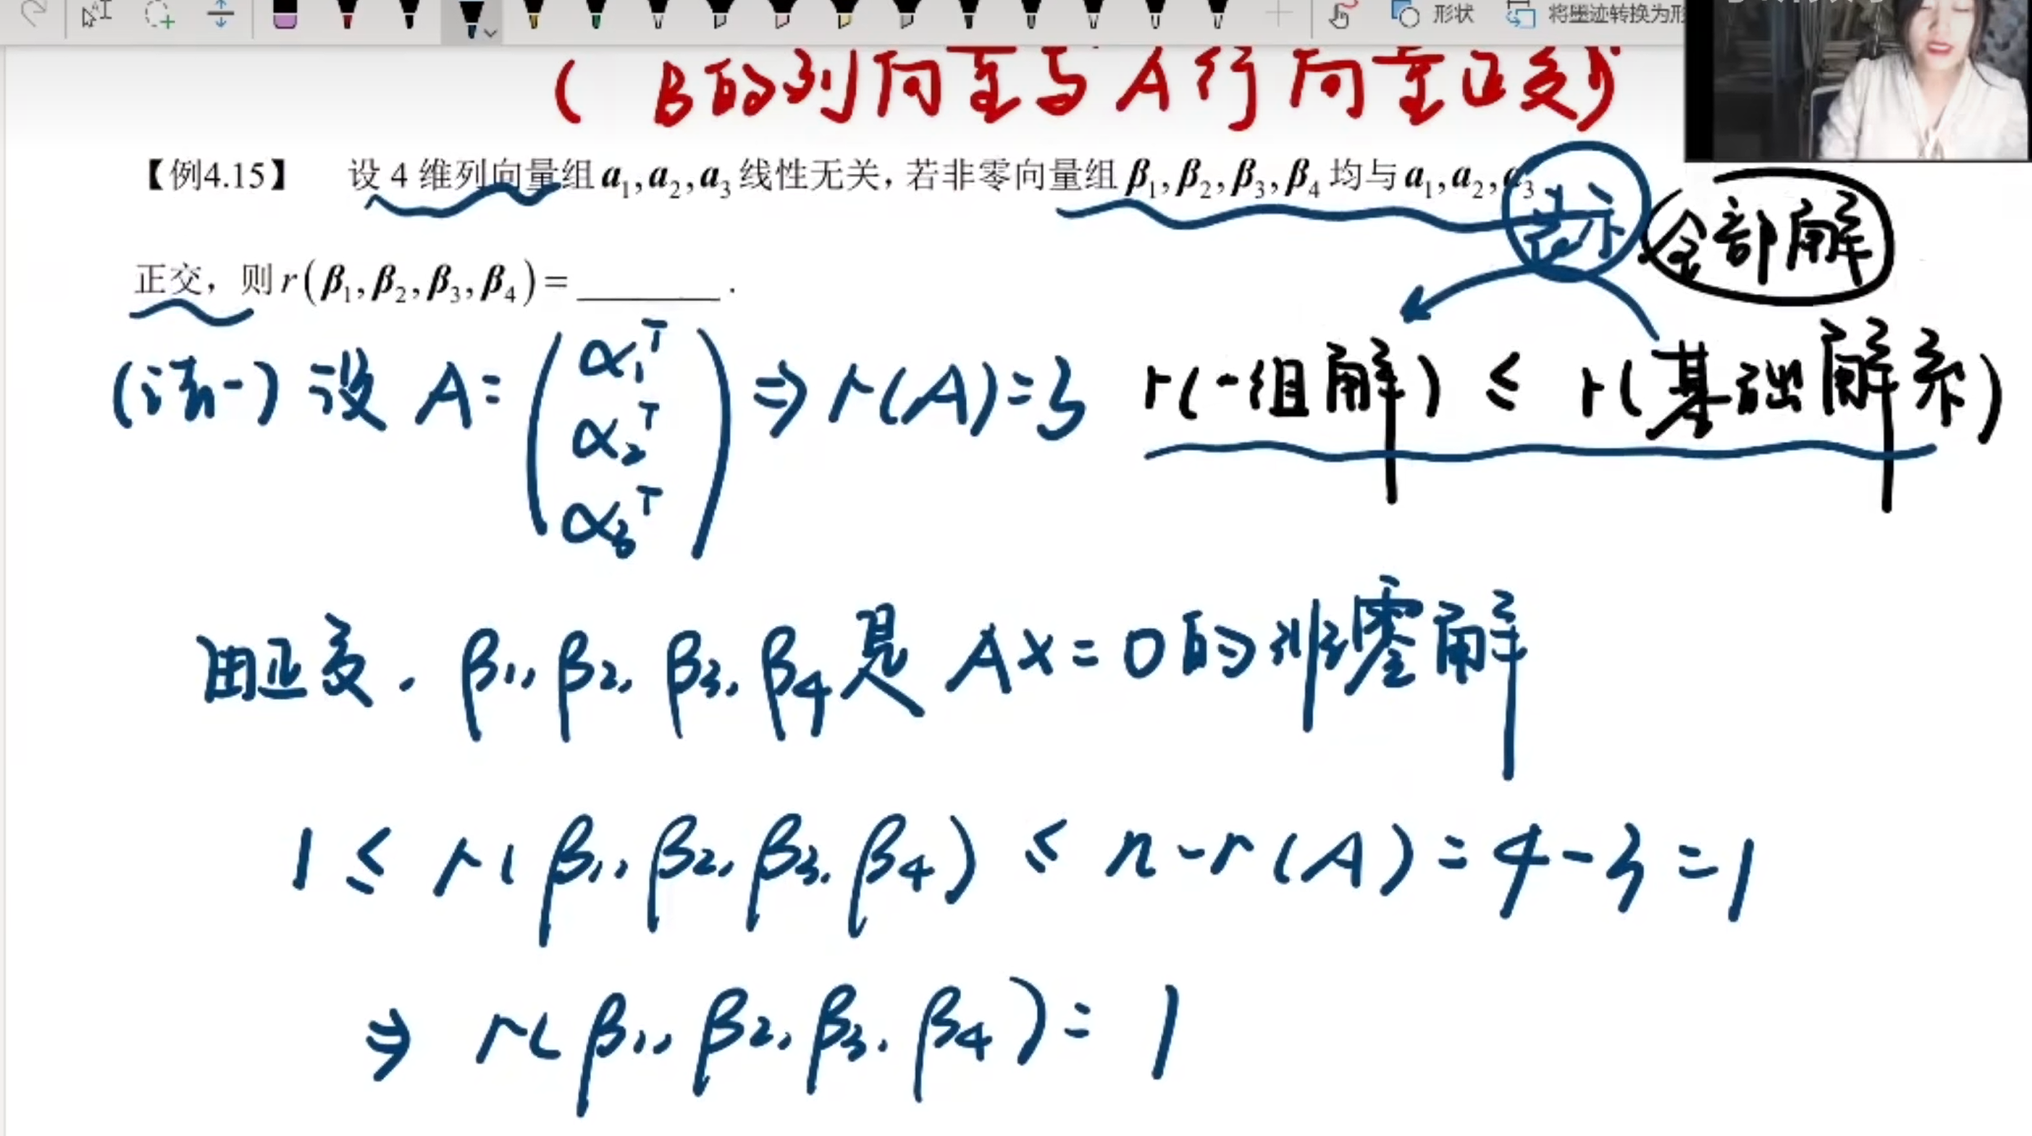 形状 将墨迹转换为形
( B的列向量与A行向量正交)
【例4.15】 设 4 维列向量组 α₁, α₂, α₃ 线性无关, 若非零向量组 β₁, β₂, β₃, β₄ 均与 α₁, α₂, α₃
表示 全部解
正交, 则 r(β₁, β₂, β₃, β₄) = ______ .
(法一) 设 A = (α₁ᵀ α₂ᵀ α₃ᵀ) ⇒ r(A) = 3 r(一组解) ≤ r(基础解系)
由正交. β₁, β₂, β₃, β₄ 是 Ax = 0 的非零解
1 ≤ r(β₁, β₂, β₃, β₄) ≤ n - r(A) = 4 - 3 = 1
⇒ r(β₁, β₂, β₃, β₄) = 1